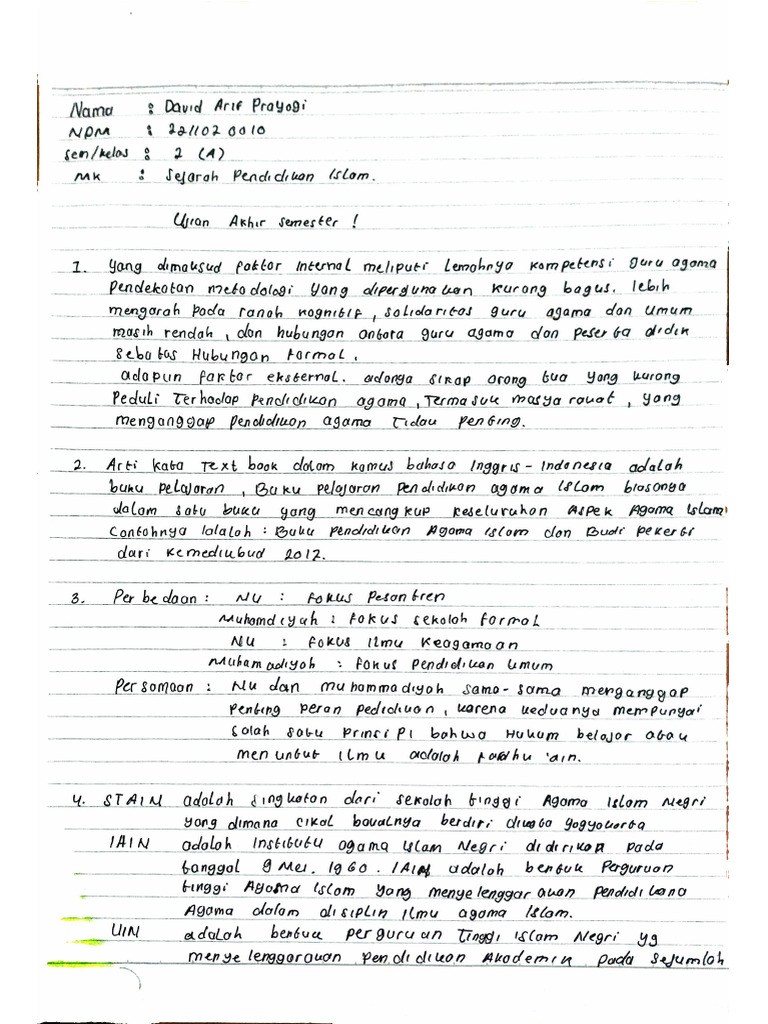 Nama : David Arif Prayogi
NPM : 221102 0010
Sem/kelas : 2 (A)
MK : Sejarah Pendidikan Islam.
Ujian Akhir Semester !
1. Yang dimaksud faktor Internal meliputi Lemahnya kompetensi guru agama
Pendekatan metodologi yang dipergunakan kurang bagus. lebih
mengarah pada ranah kognitif, solidaritas guru agama dan umum
masih rendah, dan hubungan antara guru agama dan peserta didik
Sebatas Hubungan Formal.
adapun faktor eksternal. adanya sikap orang tua yang kurang
Peduli Terhadap Pendidikan agama, Termasuk masyarakat, yang
menganggap Pendidikan agama Tidak Penting.
2. Arti kata Text book dalam kamus bahasa Inggris - Indonesia adalah
buku pelajaran, Buku pelajaran Pendidikan agama Islam biasanya
dalam satu buku yang mencangkup keseluruhan Aspek Agama Islam
Contohnya Ialalah : Buku Pendidikan Agama Islam dan Budi Pekerti
dari Kemedikbud 2012.
3. Perbedaan : NU : Fokus Pesantren
Muhamdiyah : Fokus sekolah Formal
NU : Fokus Ilmu Keagamaan
Muhamadiyah : Fokus Pendidikan Umum
Persamaan : NU dan muhammadiyah sama-sama menganggap
Penting peran pedidikan, karena keduanya mempunyai
Salah satu Prinsipi bahwa Hukum belajar atau
menuntut Ilmu adalah Fardhu 'ain.
4. STAIN adalah singkatan dari sekolah tinggi Agama Islam Negri
yang dimana cikal bakalnya berdiri dikota yogyakarta
IAIN adalah Institutu agama Islam Negri didirikan pada
tanggal 9 Mei. 1960. IAIN adalah bentuk Perguruan
tinggi Agama Islam yang menyelenggarakan Pendidikana
Agama dalam disiplin Ilmu agama Islam.
UIN adalah bentuk perguruan Tinggi Islam Negri yg
menyelenggarakan Pendidikan Akademik pada Sejumlah